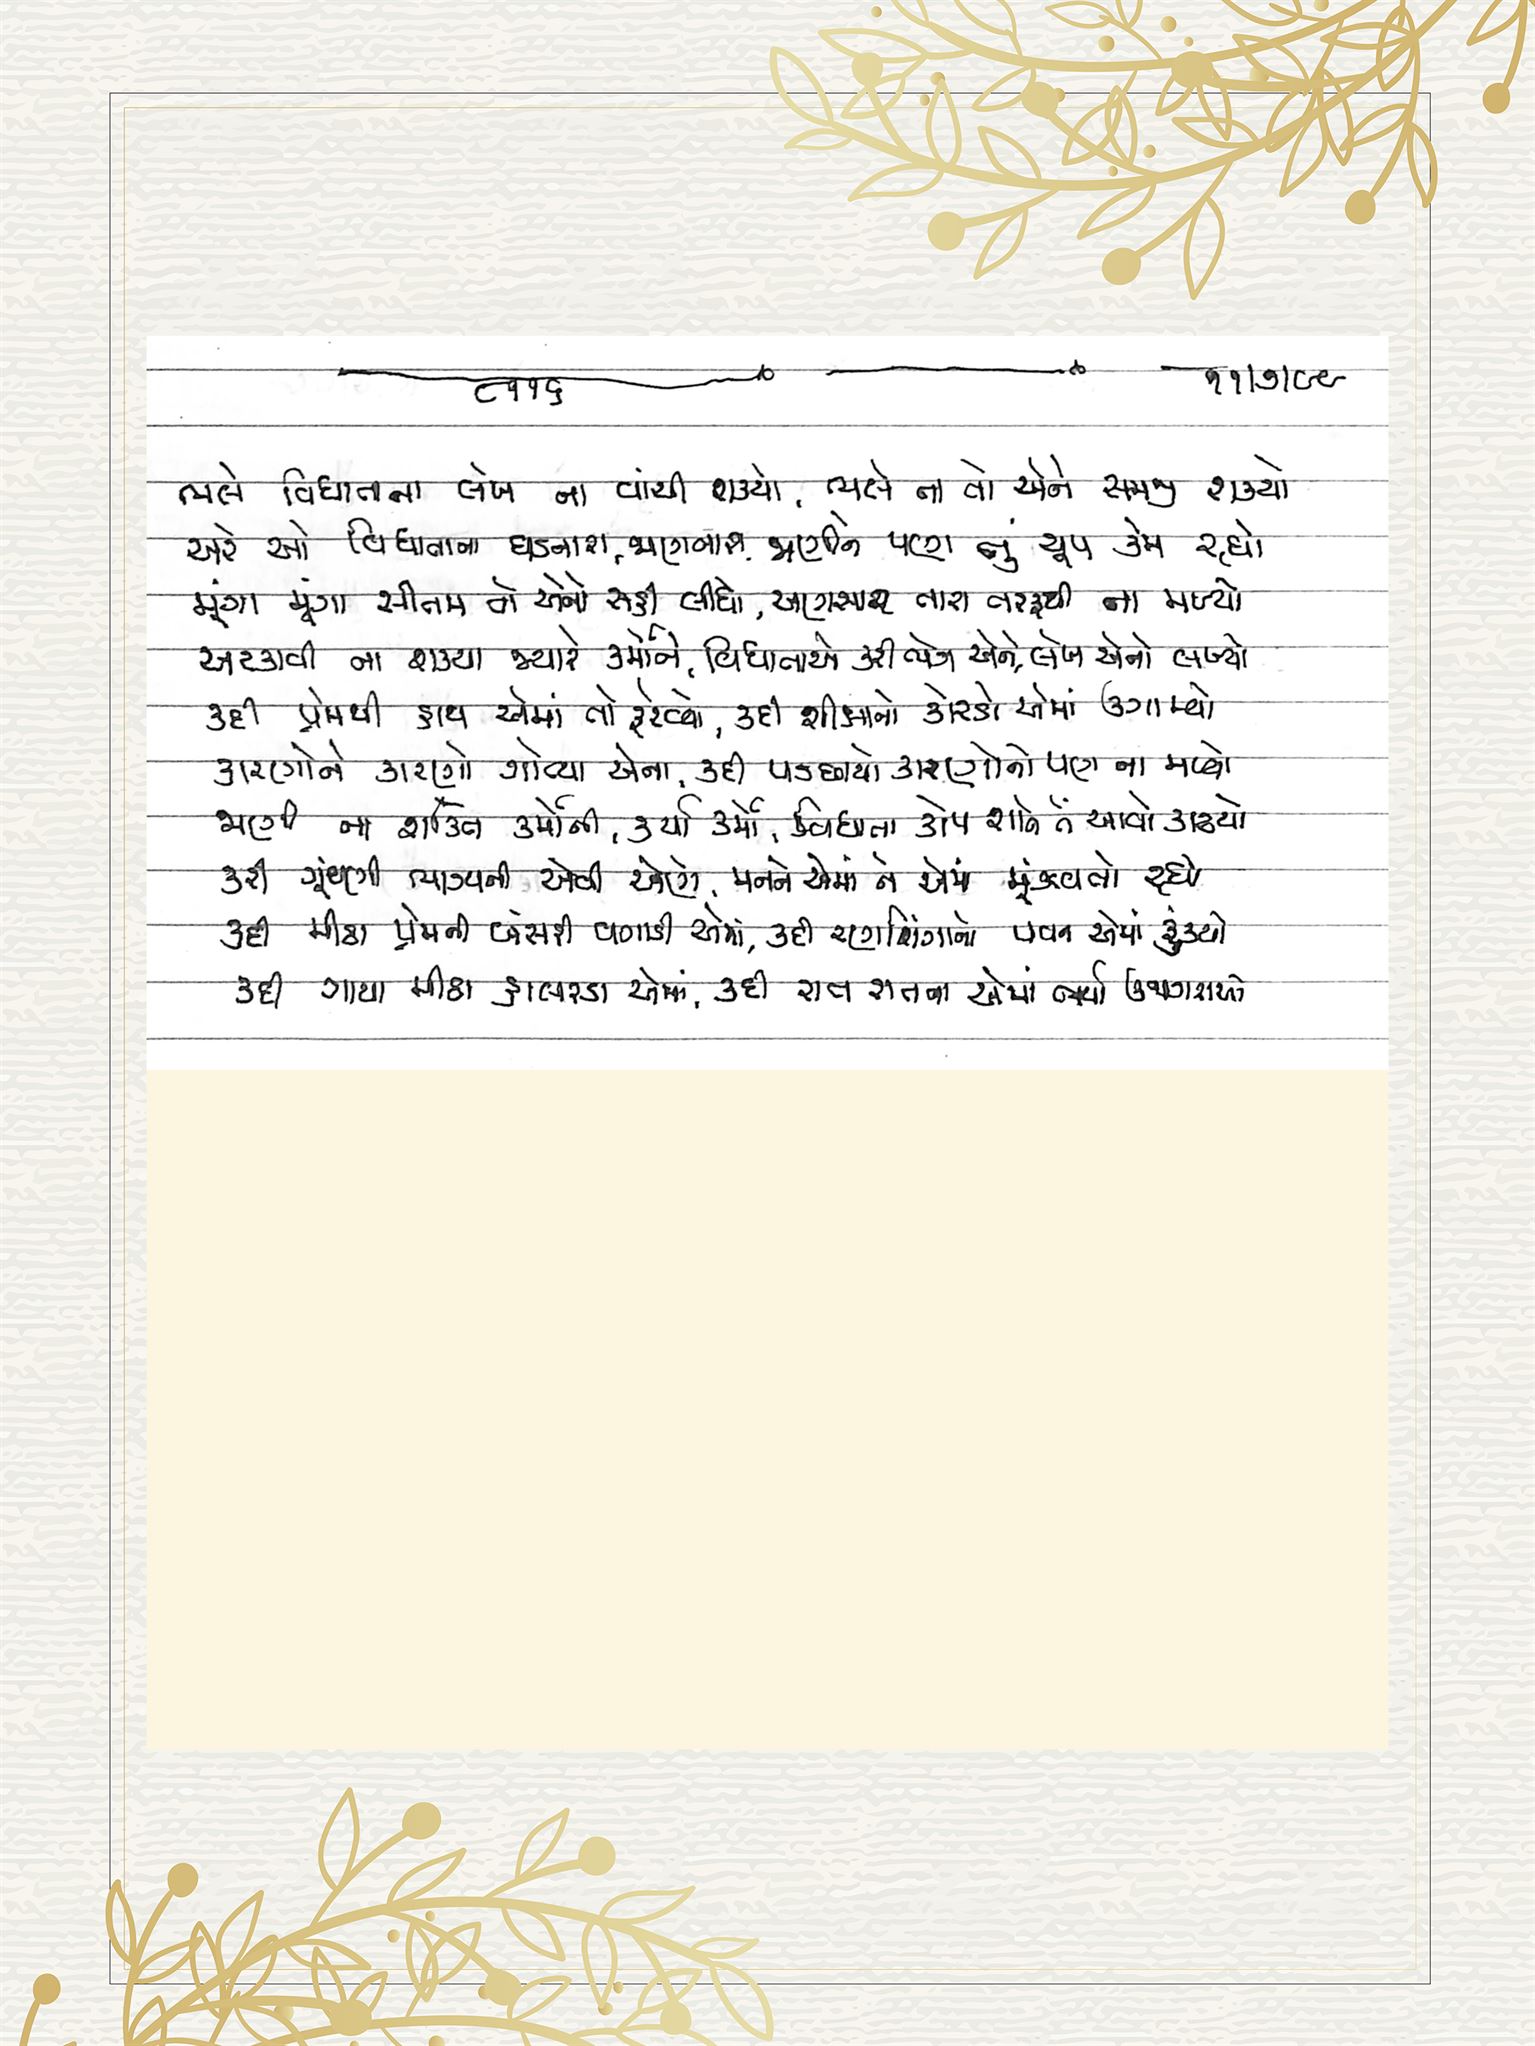 ૮૧૧૬ ૧૧/૭/૯૯
ભલે વિધાતાના લેખ ના વાંચી શક્યો, ભલે ના તો એને સમજી શક્યો
અરે ઓ વિધાતાના ઘડનારા, જાણનારા, જાણીને પણ તું ચૂપ કેમ રહ્યો
મૂંગા મૂંગા સીતમ તો એનો સહી લીધો, અણસાર તારા તરફથી ના મળ્યો
અટકાવી ના શક્યા જ્યારે કર્મોને, વિધાતાએ કરી ભેગા એને, લેખ એનો લખ્યો
કદી પ્રેમથી હાથ એમાં તો ફેરવ્યો, કદી શીક્ષાનો કોરડો એમાં ઉગામ્યો
કારણોને કારણો ગોત્યા એના, કદી પડછાયો કારણોનો પણ ના મળ્યો
જાણી ના શક્તિ કર્મોની, કર્યા કર્મો, વિધાતા કોપ શાને તેં આવો કાઢયો
કરી ગૂંથણી ભાગ્યની એવી એણે, મનને એમાં ને એમાં મૂંઝવતો રહ્યો
કદી મીઠા પ્રેમની બંસરી વગાડી એમાં, કદી રણશિંગાનો પવન એમાં ફૂંક્યો
કદી ગાયા મીઠા હાલરડા એમાં, કદી રાત રાતના એમાં ઉજાગરા